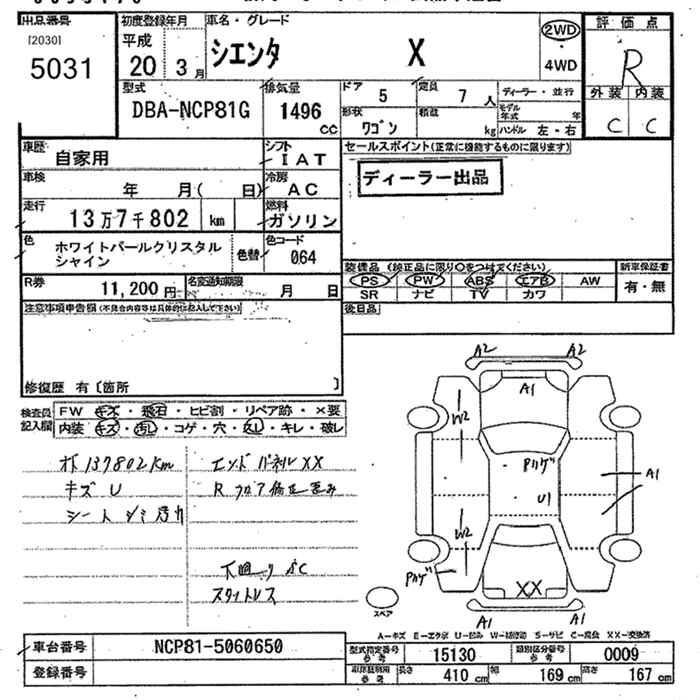 出品番号
[2030]
5031
初度登録年月
平成
20 3月
車名・グレード
シエンタ X
2WD
・
4WD
評価点
R
外装 内装
C C
型式
DBA-NCP81G
排気量
1496
CC
ドア 5
定員 7人
形状 ワゴン
積載 kg
ディーラー・並行
モデル年式 年
ハンドル 左・右
車歴 自家用
シフト IAT
車検 年 月( 日)
冷房 AC
走行 13万7千802 km
燃料 ガソリン
色 ホワイトパールクリスタルシャイン
色替
色コード 064
R券 11,200円
名変通知期限 月 日
セールスポイント(正常に機能するものに限ります)
ディーラー出品
装備品 (純正品に限り○をつけてください)
PS PW ABS エアB AW
SR ナビ TV カワ
新車保証書
有・無
後日品
注意事項申告欄(不具合内容等は具体的に記入して下さい)
修復歴 有〔箇所 〕
検査員記入欄
FW キズ・飛石・ヒビ割・リペア跡・×要
内装 キズ・汚れ・コゲ・穴・スレ・キレ・破レ
137802km
キズ U
シート シミ 汚れ
エンドパネルXX
Rフロア修正歪み
下廻り
スタッドレス
A2 A2
A1
W2
Pハゲ
U1
A1
W2
Pハゲ
XX
A1 A1
スペア
A-キズ E-エクボ U-凹み W-補修跡 S-サビ C-腐食 XX-交換済
車台番号 NCP81-5060650
登録番号
型式指定番号 参考 15130
類別区分番号 参考 0009
長さ 410 cm
幅 169 cm
高さ 167 cm